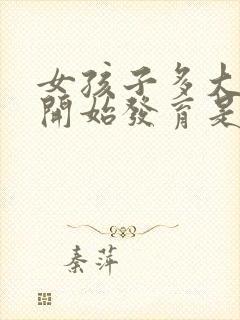 女孩子多大
開始發育是
秦萍